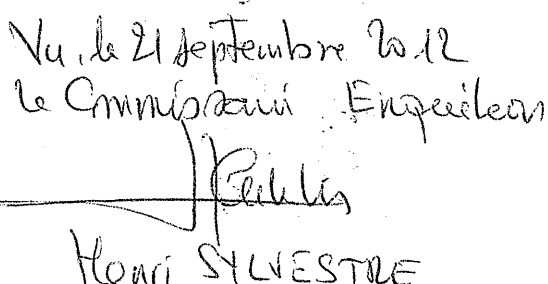 Vu, le 21 septembre 2012
Le Commissaire Enquêteur
Henri SYLVESTRE